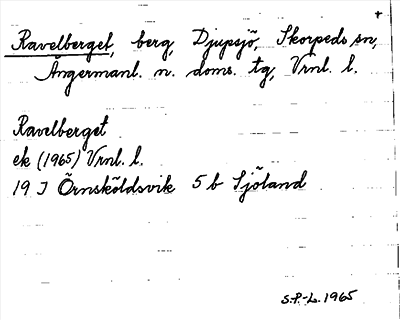 +
Ravelberget, berg, Djupsjö, Skorpeds sn,
Ångermanl. n. doms. tg, Vrnl. l.
Ravelberget
ek (1965) Vrnl. l.
19 J Örnsköldsvik 5 b Sjöland
S.P.-L. 1965